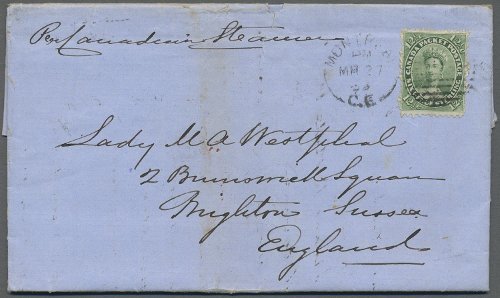 Per Canadian Steamer
MONTREAL
PM
MR 27
C.E
CANADA PACKET POSTAGE
12½
Lady M A Westphal
2 Brunswick Square
Brighton Sussex
England